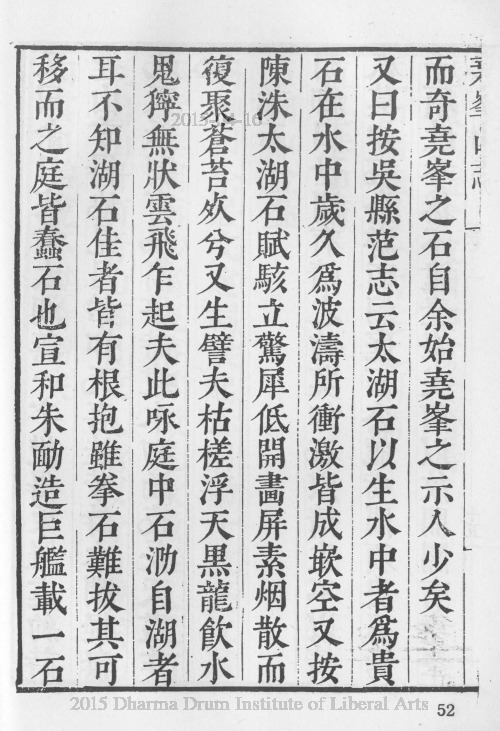 而奇堯峯之石自余始堯峯之示人少矣
又曰按吳縣范志云太湖石以生水中者爲貴
石在水中歲久爲波濤所衝激皆成嵌空又按
陳洙太湖石賦駭立驚犀低開畵屏素烟散而
復聚蒼苔攽兮又生譬夫枯槎浮天黑龍飮水
鬼獰無狀雲飛乍起夫此咏庭中石泐自湖者
耳不知湖石佳者皆有根抱雖拳石難拔其可
移而之庭皆蠢石也宣和朱勔造巨艦載一石
2015 Dharma Drum Institute of Liberal Arts
52